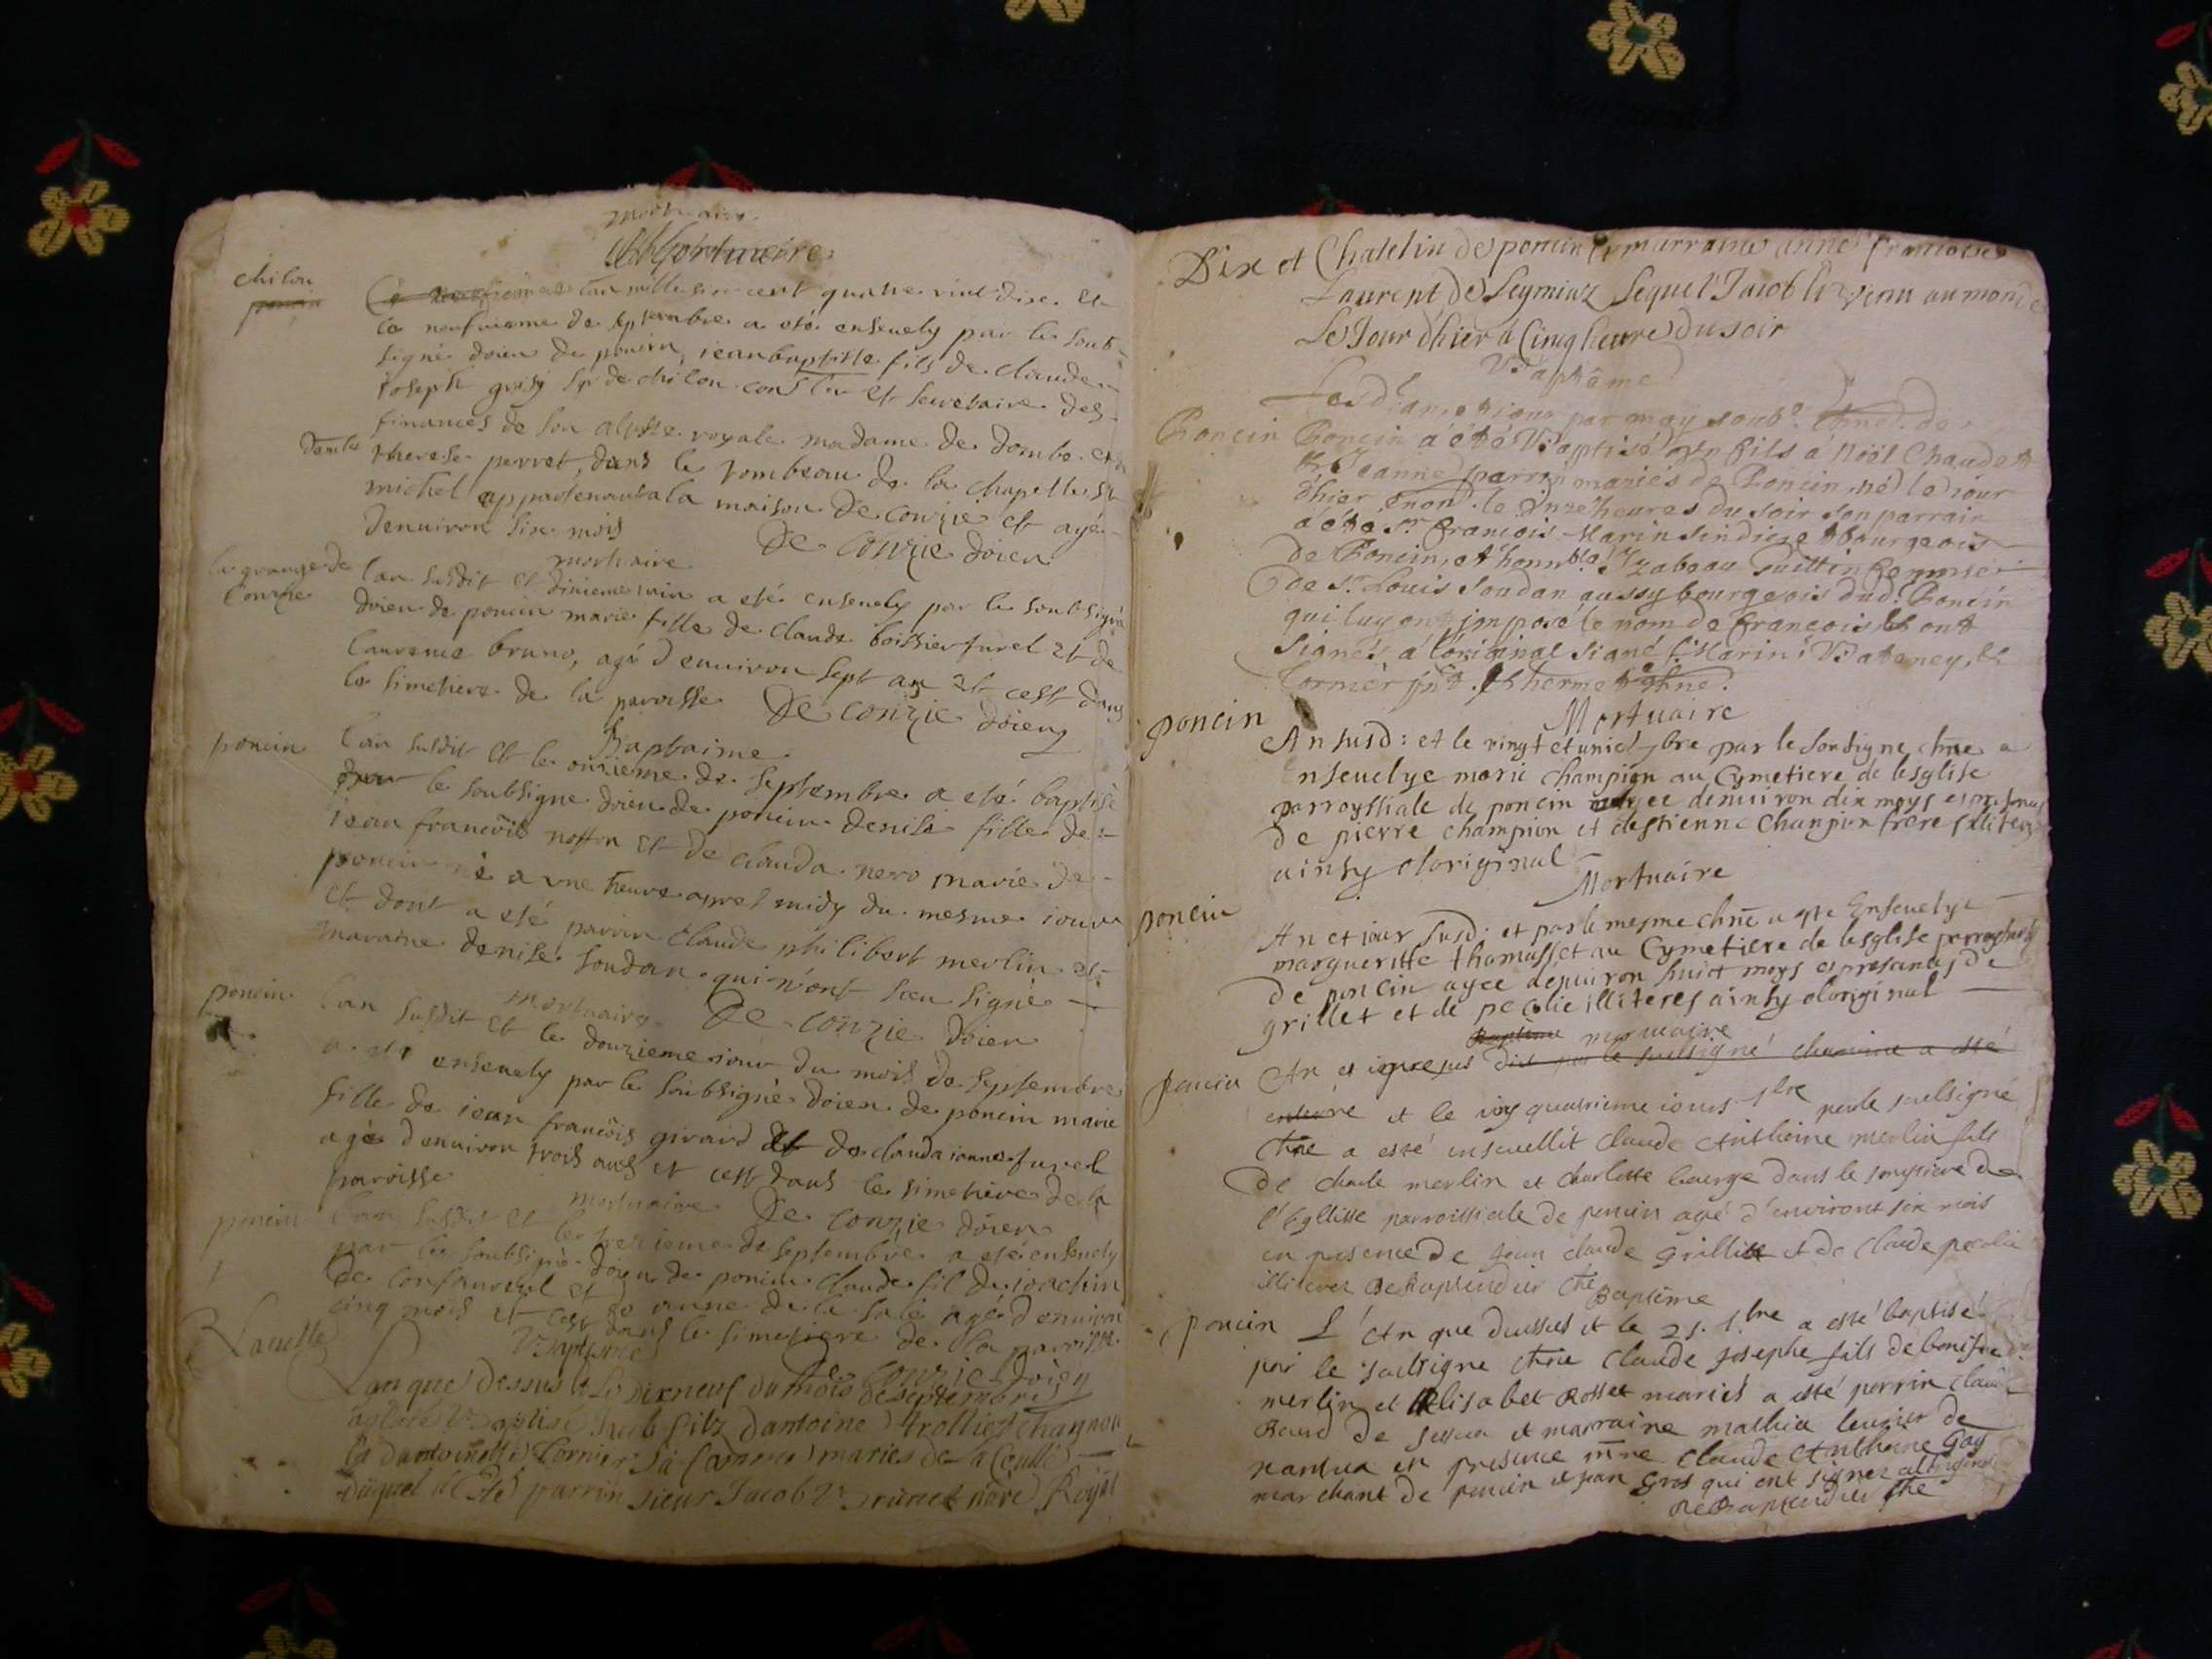 mortuaire
Mortuaire
chilou
poncin
Ce l'an mille six cent quatre vint dix et
le neufvieme de septembre a esté ensevely par le soub-
signé doien de poncin jean baptiste fils de claude
joseph grisy sr de chilou conSler et secretaire des
finances de son altesse royale madame de dombe et de
dembe therese perret, dans le tombeau de la chapelle st
michel appartenant a la maison de conzié et agé
denuiron six mois De conzie doien
mortuaire
la grange de l'an susdit et dixieme a esté ensevely par le soubsigné
conzie doien de poncin marie fille de claude boissier furel et de
laurence bruno, agé d'enuiron sept an et cest dans
le simetiere de la paroisse De conzie doien
Baptaime
poncin l'an susdit et le onzieme de septembre a esté baptisé
par le soubsigné doien de poncin denise fille de
jean françois notton et de clauda nero marié de
poncin né a vne heure apres midy du mesme iour
et dont a esté parrin claude philibert merlin et
maraine denise soudan qui n'ont sceu signé
mortuaire De conzie doien
poncin l'an susdit et le douzieme iour du mois de septembre
a esté ensevely par le soubsigné doien de poncin marie
fille de jean françois girard et de clauda ianne furel
agé d'enuiron trois ans et cest dans le simetiere de la
paroisse mortuaire De conzie doien
poncin l'an susdit et le trezieme de septembre a esté ensevely
par le soubsigné doien de poncin claude fil de joachin
de et anne de la sale agé d'enuiron
cinq mois et cest dans le simetiere de la paroisse
Baptême De conzie doien
Lan que dessus et le dixneuf du mois de septembre
a esté Baptisé Jacob filz dantoine trollier
et dantoinette Cornier sa famme mariés de la
duquel a Esté parrin sieur Jacob Brunet Royal
Dix et Chatelin de poncin Et marraine anne francoise
Laurent de Leyminz Lequel Jacob Est venu au monde
Le Jour d'hier a Cinq heure du soir
Baptême
Lesd. an et jour par moy soubsé. chne. de
Poncin Poncin a été Baptisé un fils à Noël Chaudet
et Jeanne perrin mariés de Poncin, né le jour
d'hier enon. le onze heures du soir son parrain
a été sr. françois Marin sindicq et bourgeois
de Poncin, et honnble. Yzabeau Juillin femme
de sr. Louis Soudan aussy bourgeois dud. Poncin
qui luy ont imposé le nom de françois et ont
signés à l'original signé f. Marin, &
Cornier . Lherme chne.
Mortuaire
poncin An susd: et le vingt et unie 7bre par le sousigne chne a
Enseuelye marie champion au Cymetiere de lesglise
parroyssiale de poncin agee denuiron dix moys es presences
de pierre champion et destienne Champion freres illiteres
ainsy a loriginal
Mortuaire
poncin An et jour susd. et par le mesme chne a este Enseuelye
marguerite thomasset au Cymetiere de lesglise parroyssiale
de poncin agee denuiron huict moys es presances de
grillet et de pecolie illiteres ainsy a loriginal
Baptême mortuaire
poncin An et jour sus dit par le soubsigné chanoine a esté
enterré et le vingt quatrieme iours 7bre par le soubsigné
Chne a esté enseuellit claude Anthoine merlin fils
de charle merlin et charlotte bourge dans le semytiere de
l'Egllisse parroissiale de poncin agé d'environt six mois
en presence de jean claude grillitt et de claude pecolie
illiteres chne
Baptême
poncin L'An que dessus et le 25. 7.bre a esté baptisé
par le soubsigne chne claude josephe fils de boniface
merlin et Elisabet Rosset mariés a esté perrin claude
Raud de et marraine mathia leuriet de
nantua en presence mre claude Anthoine Goy
marchant de poncin et jean Gros qui ont signez a loriginal
chne